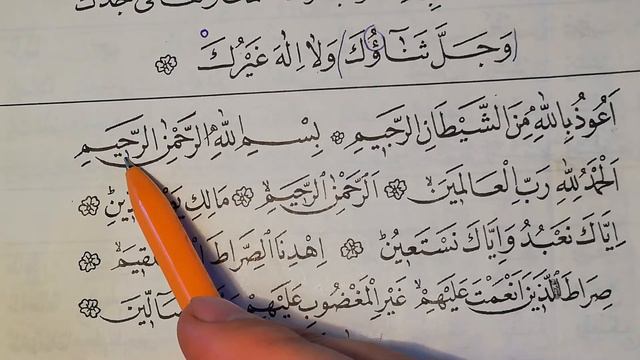 وَجَلَّ ثَنَاؤُكَ) وَلَا اِلٰهَ غَيْرُكَ)
اَعُوذُ بِاللّٰهِ مِنَ الشَّيْطَانِ الرَّجِيمِ بِسْمِ اللّٰهِ الرَّحْمٰنِ الرَّحِيمِ
اَلْحَمْدُ لِلّٰهِ رَبِّ الْعَالَمِينَ اَلرَّحْمٰنِ الرَّحِيمِ مَالِكِ
اِيَّاكَ نَعْبُدُ وَاِيَّاكَ نَسْتَعِينُ اِهْدِنَا الصِّرَاطَ
صِرَاطَ الَّذِينَ اَنْعَمْتَ عَلَيْهِمْ غَيْرِ الْمَغْضُوبِ عَلَيْهِمْ